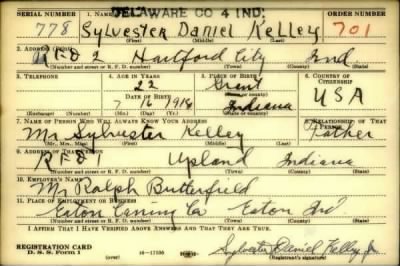 DELAWARE CO 4 IND.
SERIAL NUMBER 1. NAME (Print) ORDER NUMBER
778 Sylvester Daniel Kelley 701
(First) (Middle) (Last)
2. ADDRESS (Print)
RFD 2 Hartford City Ind
(Number and street or R. F. D. number) (Town) (County) (State)
3. TELEPHONE 4. AGE IN YEARS 5. PLACE OF BIRTH 6. COUNTRY OF CITIZENSHIP
22 Grant
DATE OF BIRTH (Town or county)
7 16 1918 Indiana USA
(Exchange) (Number) (Mo.) (Day) (Yr.) (State or country)
7. NAME OF PERSON WHO WILL ALWAYS KNOW YOUR ADDRESS 8. RELATIONSHIP OF THAT PERSON
Mr Sylvester Kelley Father
(Mr., Mrs., Miss) (First) (Middle) (Last)
9. ADDRESS OF THAT PERSON
RFD 1 Upland Indiana
(Number and street or R. F. D. number) (Town) (County) (State)
10. EMPLOYER'S NAME
Mr Ralph Butterfield
11. PLACE OF EMPLOYMENT OR BUSINESS
Eaton Caning Co Eaton Ind
(Number and street or R. F. D. number) (Town) (County) (State)
I AFFIRM THAT I HAVE VERIFIED ABOVE ANSWERS AND THAT THEY ARE TRUE.
REGISTRATION CARD
D. S. S. Form 1 16-17105 Sylvester Daniel Kelley Jr
(Registrant's signature)